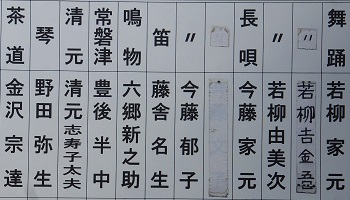 舞踊 若柳家元
〃 若柳由美次
〃 若柳吉金吾
長唄 今藤家元
〃 今藤郁子
笛 藤舎名生
鳴物 六郷新之助
常磐津 豊後半中
清元 清元志寿子太夫
琴 野田弥生
茶道 金沢宗達